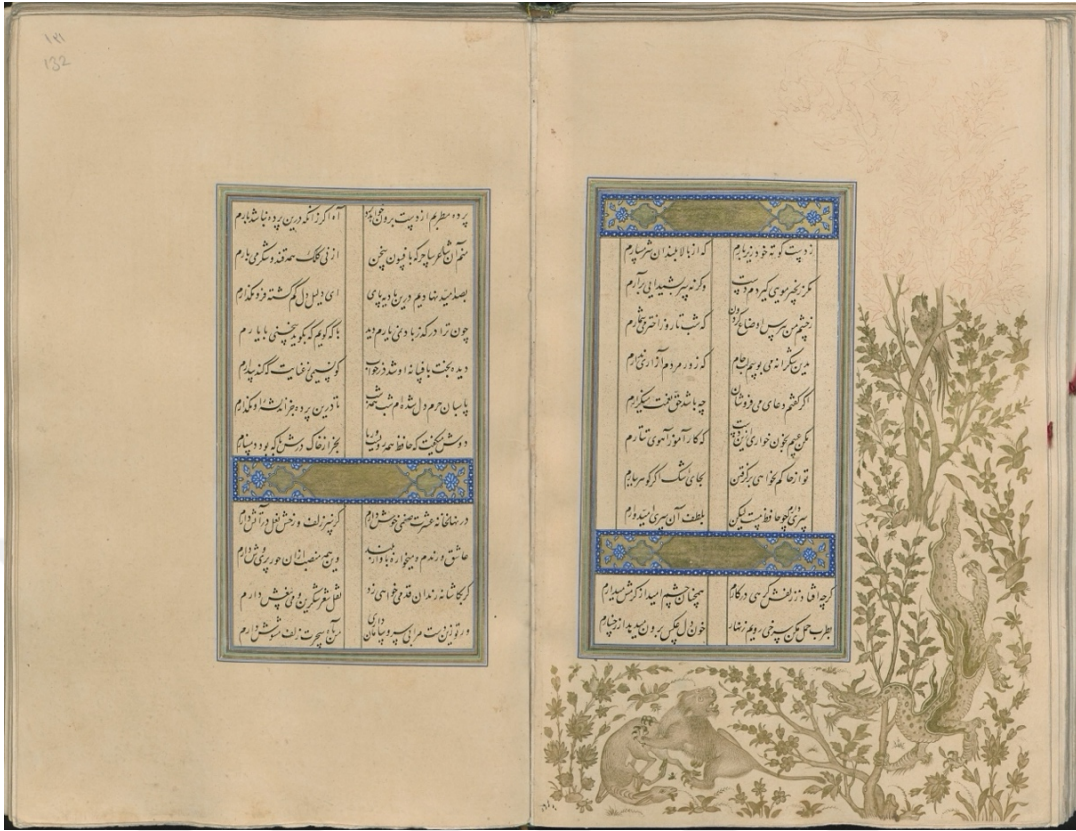 ز دست کوته خود زیر بارم که از بالا بلندان شرمسارم
مکر زنجیر مویی کیردم دست وکرنه سر بشیدایی برآرم
ز چشم من بپرس اوضاع کردون که شب تا روز اختر می شمارم
بدین شکرانه می بوسم لب جام که زور مردم آزاری ندارم
اکر کفتم دعای می فروشان چه باشد حق نعمت میکزارم
مکن عیبم بخون خواری درین دشت که کار آموز آهوی تتارم
تو از خاکم نخواهی برکرفتن بجای اشک اکر کوهر ببارم
سری دارم چو حافظ مست لیکن بلطف آن سری امیدوارم
کرچه افتاد ز زلفش کرهی در کارم همچنان چشم امید از کرمش میدارم
بطرب حمل مکن سرخی رویم زنهار خون دل عکس برون میدهد از رخسارم
۱۳۱
132
پرده مطربم از دست برون خواهد برد آه اکر زانکه درین پرده نباشد بارم
منم آن شاعر ساحر که بافسون سخن از نی کلک همه قند و شکر می بارم
بصد امید نهادیم درین بادیه پای ای دلیل دل کم کشته فرو مکذارم
چون ترا در کذر باد نمی یارم دید با که کویم که بکوید سخنی با یارم
دیده بخت بافسانه او شد در خواب کو نسیمی ز عنایت که کند بیدارم
پاسبان حرم دل شده ام شب همه شب تا درین پرده جز اندیشه او نکذارم
دوش میکفت که حافظ همه رویست و ریا بجز از خاک درش با که بود بازارم
در نهانخانه عشرت صنمی خوش دارم کز سر زلف و رخش نعل در آتش دارم
عاشق و رندم و میخواره بآواز بلند وین همه منصب از آن حور پری وش دارم
کر بکاشانه رندان قدمی خواهی زد نقل شعر شکرین و می بیغش دارم
ور تو زین دست مرا بی سر و سامان داری من بآه سحرت زلف مشوش دارم